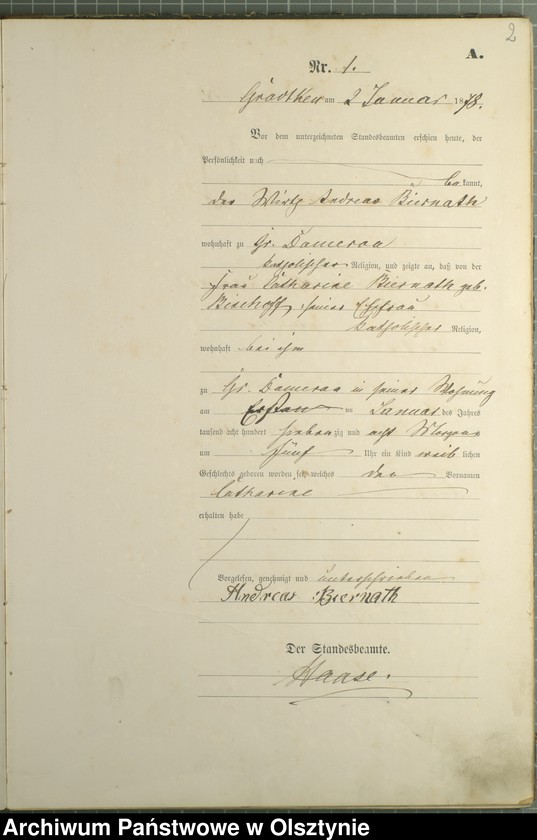 2
A.
Nr. 1.
am 2 Januar 1878.
Vor dem unterzeichneten Standesbeamten erschien heute, der
Persönlichkeit nach
bekannt,
der Wirth Andreas Biernath
wohnhaft zu Gr. Damerau
katholischer Religion, und zeigte an, daß von der
Frau Catharine Biernath geb.
Bischoff, seiner Ehefrau
katholischer Religion,
wohnhaft bei ihm
zu Gr. Damerau in seiner Wohnung
am Ersten ten Januar des Jahres
tausend acht hundert siebenzig und acht Morgens
um fünf Uhr ein Kind weiblichen
Geschlechts geboren worden sei, welches den Vornamen
Catharine
erhalten habe
Vorgelesen, genehmigt und unterschrieben
Andreas Biernath
Der Standesbeamte.
Haase.
Archiwum Państwowe w Olsztynie